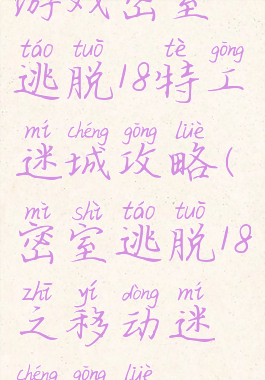 游戏密室
táo tuō tè gōng
逃脱18特工
mí chéng gōng lüè
迷城攻略(
mì shì táo tuō
密室逃脱18
zhī yí dòng mí
之移动迷
chéng gōng lüè